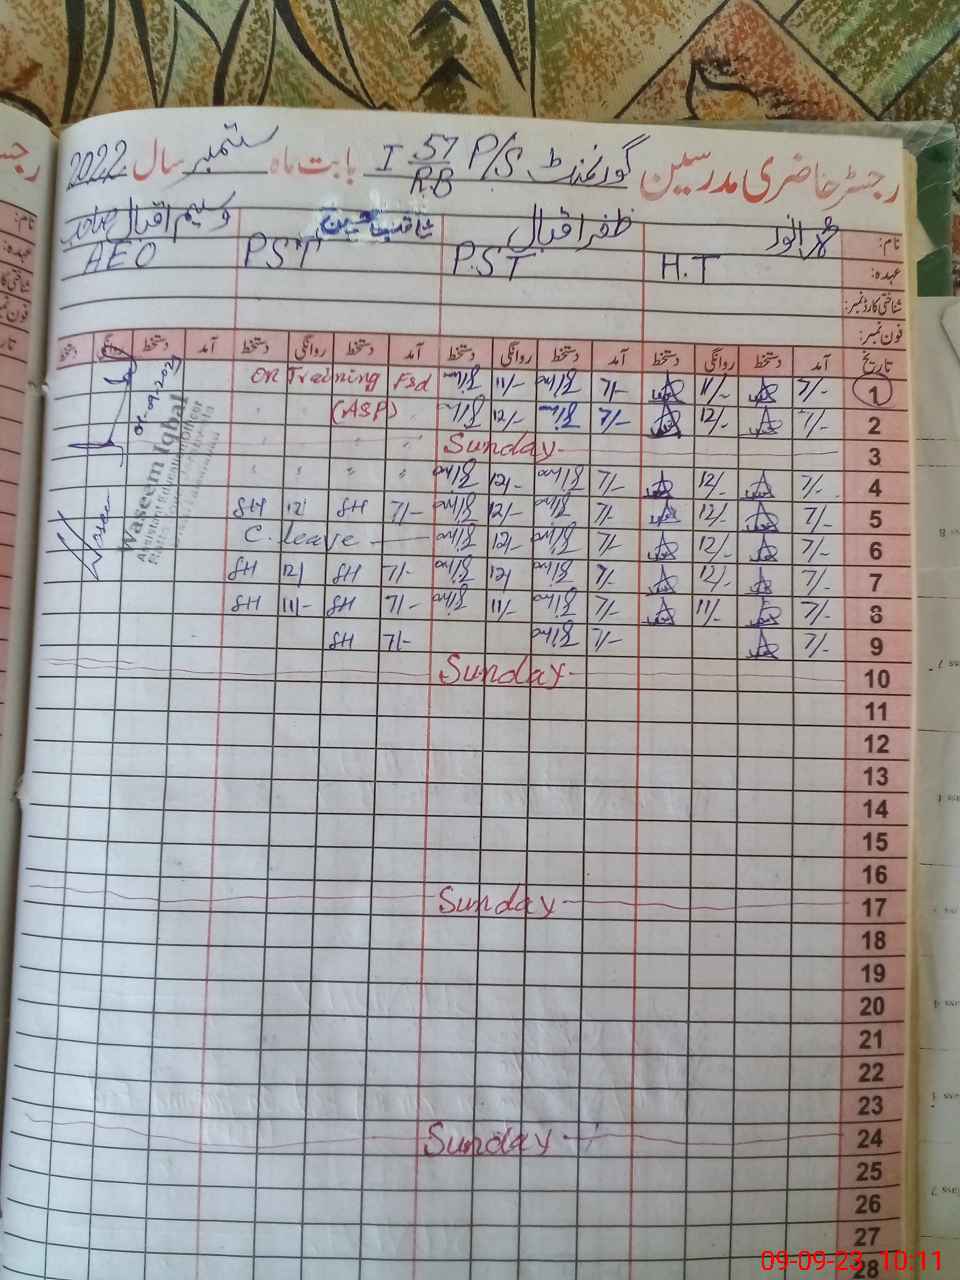 رجسٹر حاضری مدرسین گورنمنٹ P/S 57/RB I بابت ماہ ستمبر سال 2022
نام: انور ظفر اقبال ثاقب حسین وسیم اقبال
عہدہ: H.T P.S.T PST AEO
شناختی کارڈ نمبر:
فون نمبر:
تاریخ آمد دستخط روانگی دستخط آمد دستخط روانگی دستخط آمد دستخط روانگی دستخط آمد دستخط روانگی دستخط
1 7/- 11/- 7/- 11/- On Training Fsd
2 7/- 12/- 7/- 12/- (ASP)
3 Sunday
4 7/- 12/- 7/- 12/- " " " "
5 7/- 12/- 7/- 12/- 7/- SH 12/ SH
6 7/- 12/- 7/- 12/- C. leave
7 7/- 12/- 7/- 12/ 7/- SH 12/ SH
8 7/- 11/- 7/- 11/- 7/- SH 11/- SH
9 7/- 7/- 7/- SH
10 Sunday
11
12
13
14
15
16
17 Sunday
18
19
20
21
22
23
24 Sunday
25
26
27
28
Waseem Iqbal
Assistant Education Officer
09-09-23 10:11